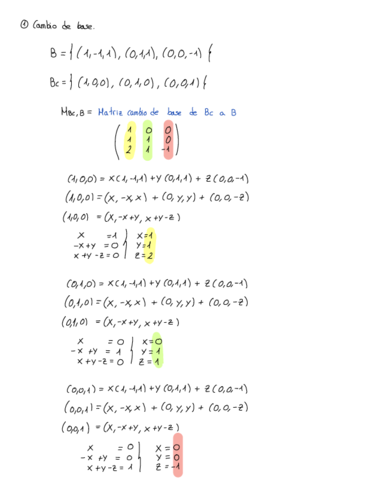 ① Cambio de base.
B = { (1,-1,1), (0,1,1), (0,0,-1) }
Bc = { (1,0,0), (0,1,0), (0,0,1) }
M_Bc,B = Matriz cambio de base de Bc a B
( 1 0 0
1 1 0
2 1 -1 )
(1,0,0) = x(1,-1,1) + y(0,1,1) + z(0,0,-1)
(1,0,0) = (x,-x,x) + (0,y,y) + (0,0,-z)
(1,0,0) = (x,-x+y, x+y-z)
x = 1 | x = 1
-x+y = 0 | y = 1
x+y-z = 0 | z = 2
(0,1,0) = x(1,-1,1) + y(0,1,1) + z(0,0,-1)
(0,1,0) = (x,-x,x) + (0,y,y) + (0,0,-z)
(0,1,0) = (x,-x+y, x+y-z)
x = 0 | x = 0
-x+y = 1 | y = 1
x+y-z = 0 | z = 1
(0,0,1) = x(1,-1,1) + y(0,1,1) + z(0,0,-1)
(0,0,1) = (x,-x,x) + (0,y,y) + (0,0,-z)
(0,0,1) = (x,-x+y, x+y-z)
x = 0 | x = 0
-x+y = 0 | y = 0
x+y-z = 1 | z = -1